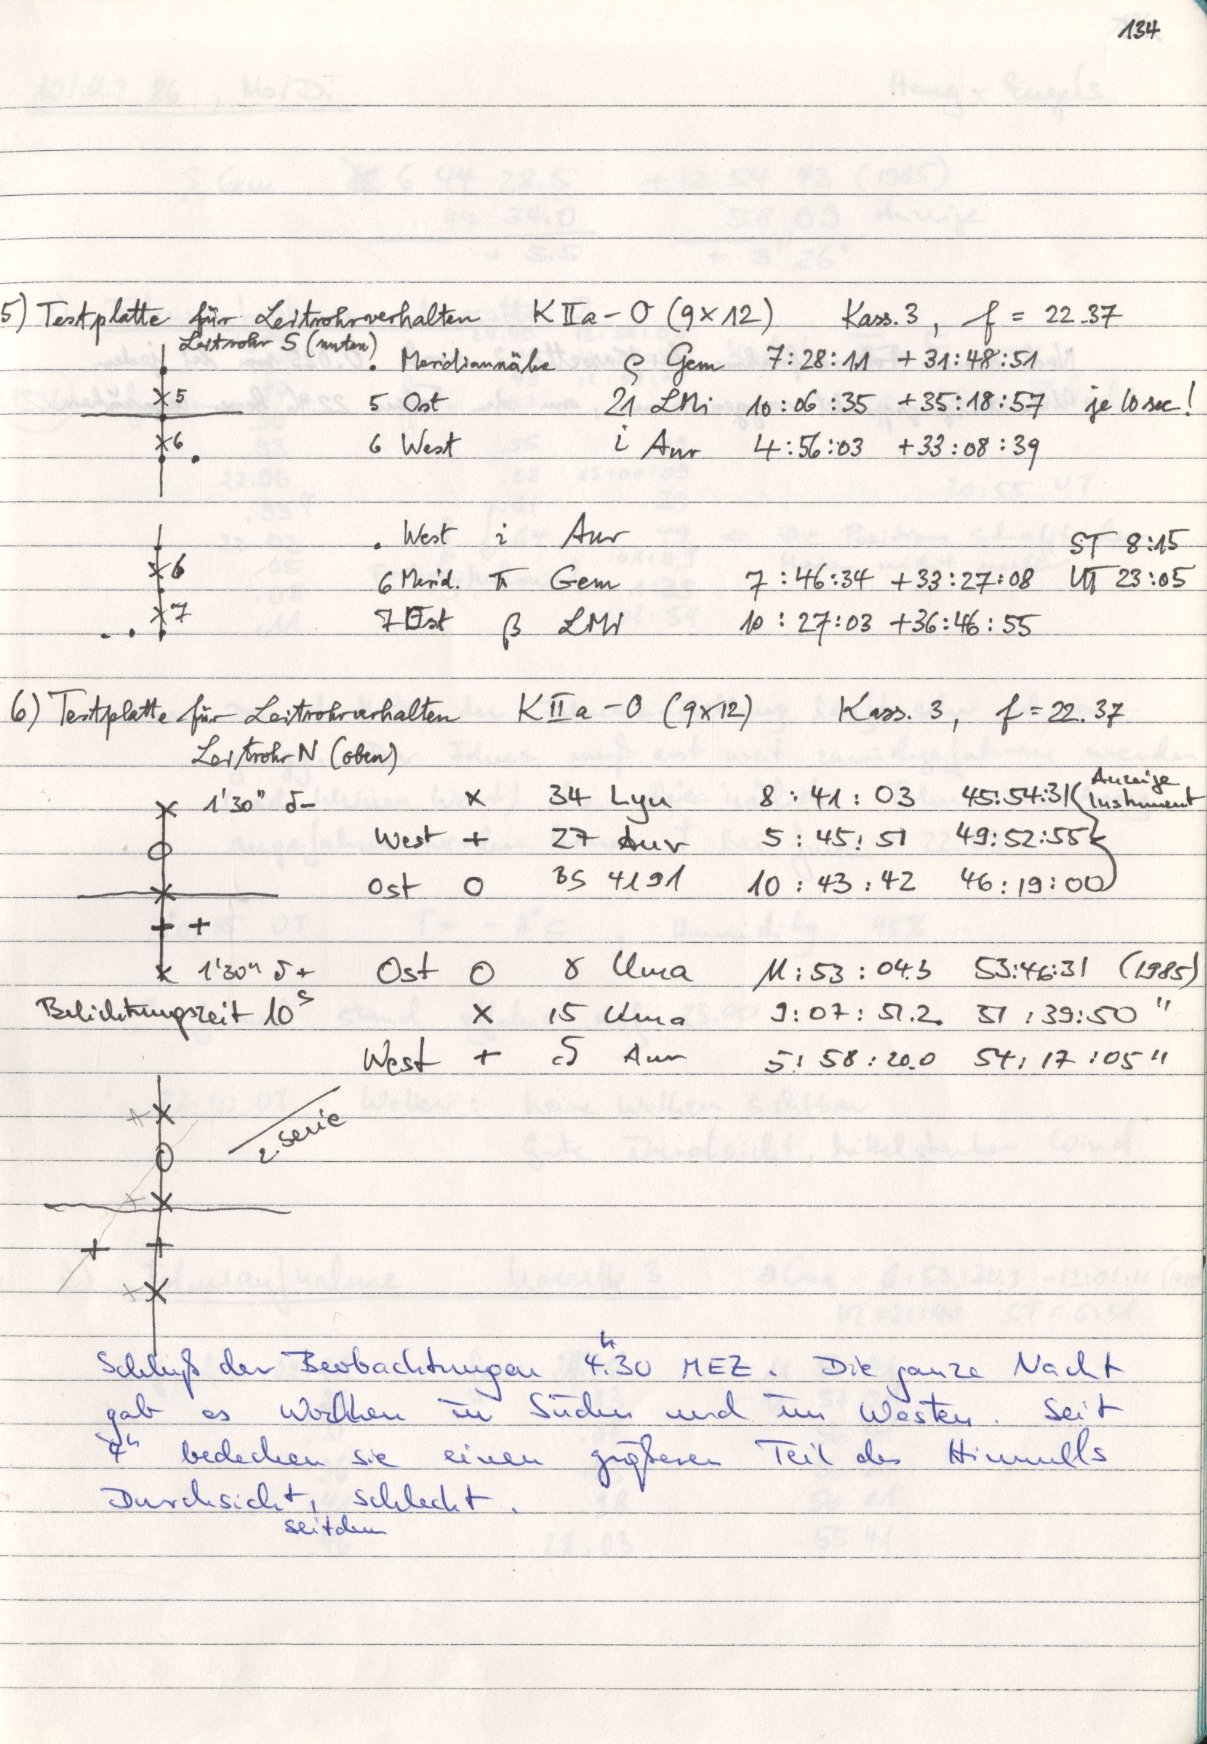 134
5) Testplatte für Leitrohrverhalten K IIa-O (9x12) Kass. 3, f = 22.37
Leitrohr S (unten)
. Meridiannähe ρ Gem 7:28:11 +31:48:51
x5 5 Ost 21 LMi 10:06:35 +35:18:57 je 10 sec!
x6 6 West i Aur 4:56:03 +33:08:39
. West i Aur ST 8:15
x6 6 Merid. π Gem 7:46:34 +33:27:08 UT 23:05
x7 7 Ost β LMi 10:27:03 +36:46:55
6) Testplatte für Leitrohrverhalten K IIa-O (9x12) Kass. 3, f = 22.37
Leitrohr N (oben)
x 1'30" δ- x 34 Lyn 8:41:03 45:54:31 Anzeige Instrument
West + 27 Aur 5:45:51 49:52:55
Ost O BS 4191 10:43:42 46:19:00
x 1'30" δ+ Ost O γ Uma 11:53:04.3 53:46:31 (1985)
Belichtungszeit 10s x 15 Uma 9:07:51.2 51:39:50 "
West + δ Aur 5:58:20.0 54:17:05 "
2. Serie
Schluß der Beobachtungen 4h.30 MEZ. Die ganze Nacht
gab es Wolken im Süden und im Westen. Seit
4h bedecken sie einen größeren Teil des Himmels
Durchsicht, schlecht.
seitdem